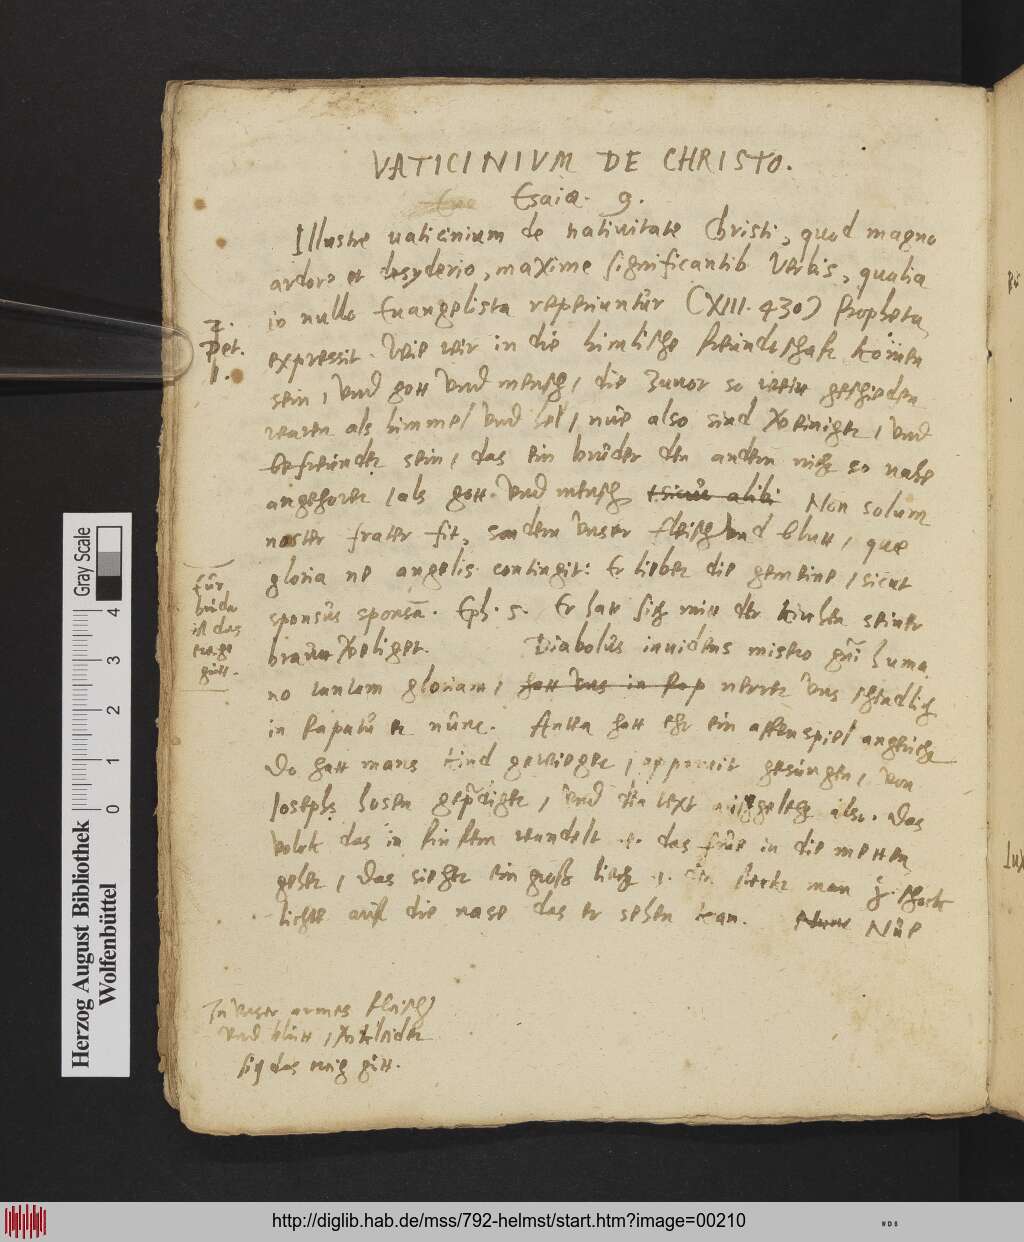 VATICINIVM DE CHRISTO.
Esaiæ. 9.
Illustre uaticinium de natiuitate Christi, quod magno
ardore et desyderio, maxime significantib verbis, qualia
in nullo Euangelista reperiuntur (XIII. 430) Propheta
expressit. Wie wir in die himlische freundschaft komen
sein, vnd gott vnd mensch, die zuuor so weitt geschieden
waren als himmel vnd hel, nue also sind vereiniget, vnd
befreundet sein, das ein bruder den andern nicht so nahe
angehoret, als gott vnd mensch sicut alibi Non solum
noster frater fit, sondern vnser fleisch vnd blutt, quæ
gloria ne angelis contingit: Er liebet die gemeine, sicut
sponsus sponsā. Eph. 5. Er hatt sich mitt der kirchen seiner
brautt
Diabolus inuidens misero huma
no tantam gloriam, gott vns in Pap vns
in Papatu et nunc. Antea hatt ehr ein affenspiel angericht
Do hatt mans kind gewieget, gesungen, von
Josephs hosen geprdiget, vnd den text ausgelegt also. Das
volck das in finstern wandelt .i. das frue in die metten
gehet, das siehet ein groß liecht .i. man
lichte auff die nase das er sehen kan. Nunc Nue
2.
Pet.
1.
Fur
bruder
ist das
ewge
gutt.
In vnser armes fleisch
vnd blutt, verkleidet
sich das ewig gutt.
Herzog August Bibliothek
Wolfenbüttel
Gray Scale
0 1 2 3 4
http://diglib.hab.de/mss/792-helmst/start.htm?image=00210